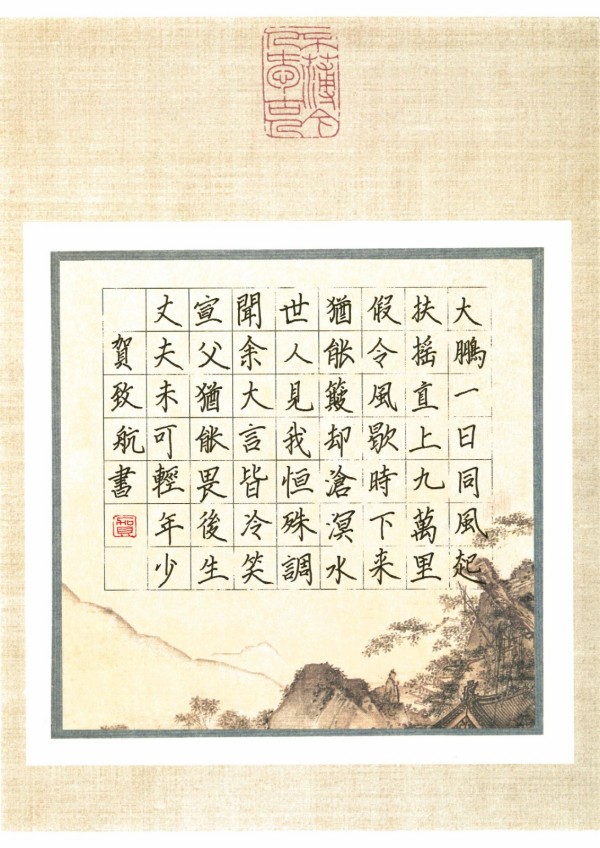 大鵬一日同風起
扶摇直上九萬里
假令風歇時下来
猶能簸却滄溟水
世人見我恒殊調
聞余大言皆冷笑
宣父猶能畏後生
丈夫未可輕年少
賀致航書
賀